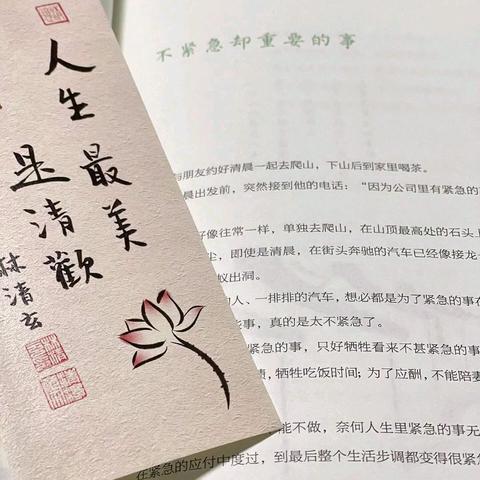 人生
最美
是清歡
林清玄
不紧急却重要的事
与朋友约好清晨一起去爬山，下山后到家里喝茶。
晨出发前，突然接到他的电话：“因为公司里有紧急的事
好像往常一样，单独去爬山，在山顶最高处的石头上
尘，即使是清晨，在街头奔驰的汽车已经像接龙
蚁出洞。
的人、一排排的汽车，想必都是为了紧急的事在
些事，真的是太不紧急了。
紧急的事，只好牺牲看来不甚紧急的事
绩，牺牲吃饭时间；为了应酬，不能陪妻
能不做，奈何人生里紧急的事无
在紧急的应付中度过，到最后整个生活步调都变得很紧急